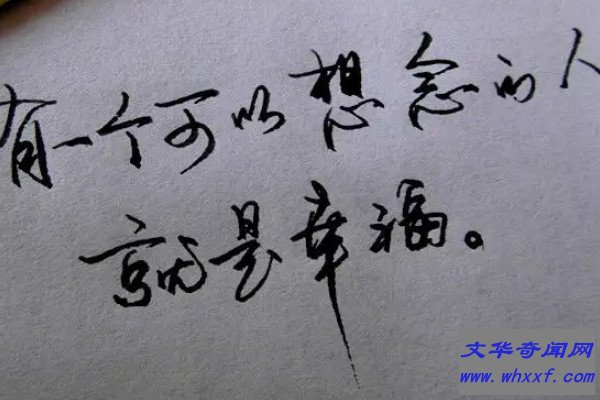 有一个可以想念的人
就是幸福。
文华奇闻网
www.whxxf.com